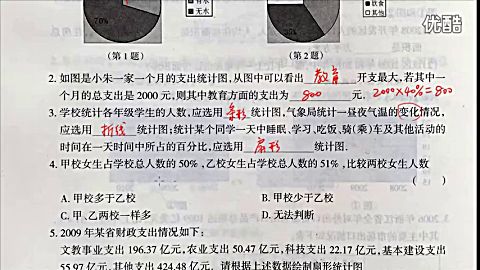 有水
无水
70%
饮食
其他
优酷
(第1题)
(第2题)
2. 如图是小朱一家一个月的支出统计图,从图中可以看出 教育 开支最大,若其中一
个月的总支出是 2000 元,则其中教育方面的支出为 800 元. 2000×40%=800
3. 学校统计各年级学生的人数,应选用 条形 统计图,气象局统计一昼夜气温的变化情况,
应选用 折线 统计图;统计某个同学一天中睡眠、学习、吃饭、骑(乘)车及其他活动的
时间在一天时间中所占的百分比,应选用 扇形 统计图.
4. 甲校女生占学校总人数的 50%,乙校女生占学校总人数的 51%,比较两校女生人数
( )
A. 甲校多于乙校
B. 甲校少于乙校
C. 甲、乙两校一样多
D. 无法判断
5. 2009 年某省财政支出情况如下:
文教事业支出 196.37 亿元,农业支出 50.47 亿元,科技支出 22.17 亿元,基本建设支出
55.97 亿元,其他支出 424.48 亿元. 请根据上述数据绘制扇形统计图